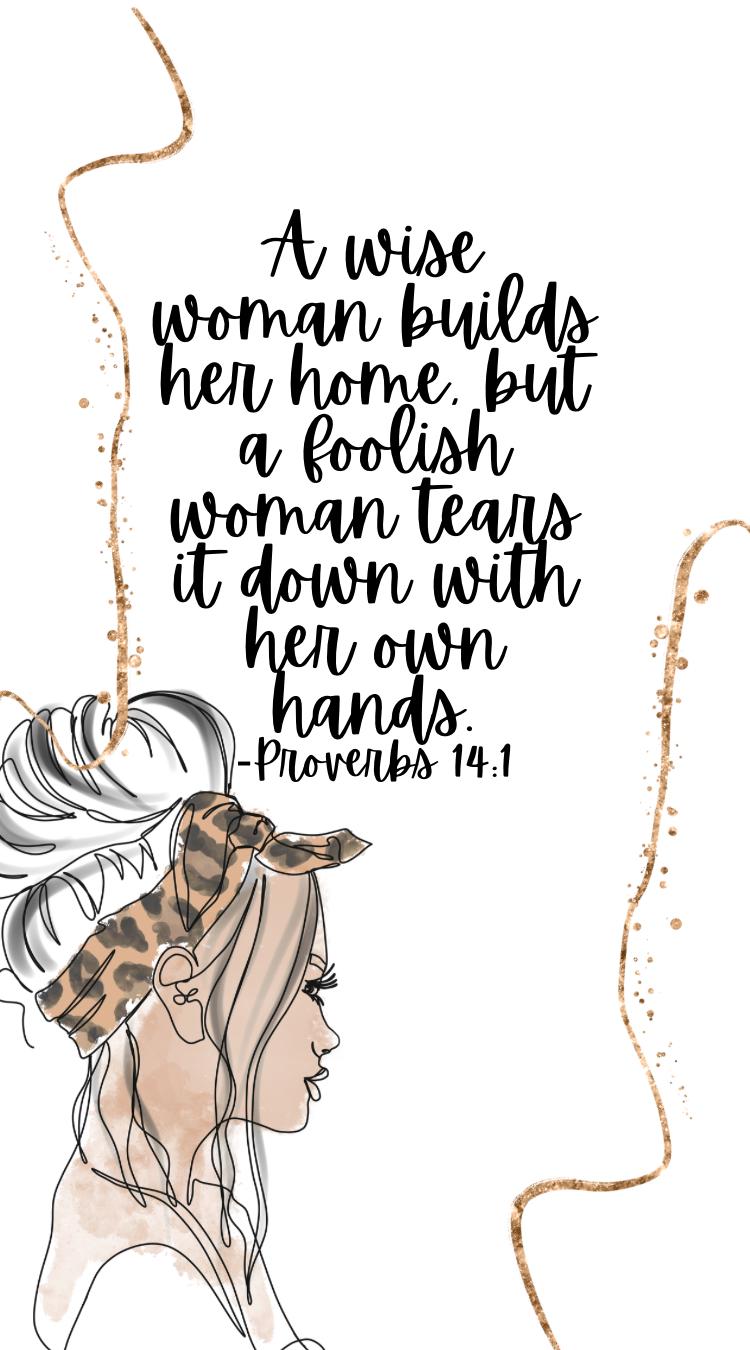 A wise
woman builds
her home, but
a foolish
woman tears
it down with
her own
hands.
-Proverbs 14:1